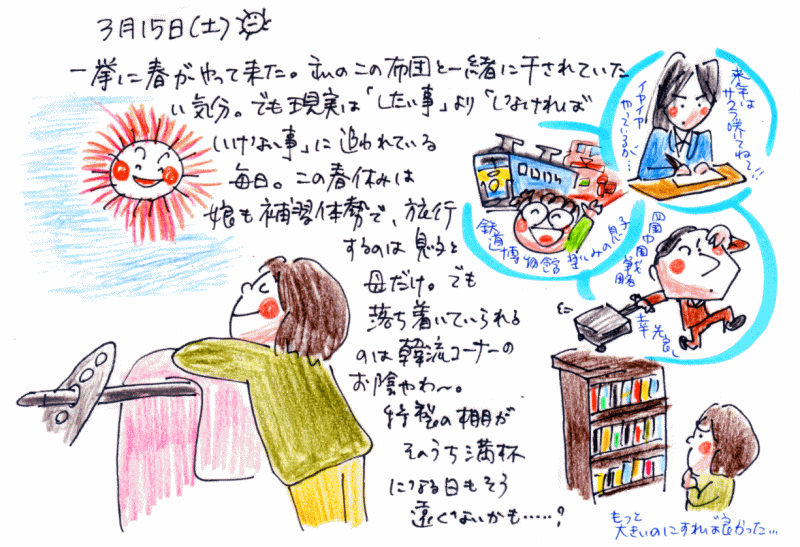 3月15日(土)
一挙に春がやって来た。私のこの布団と一緒に干されていた
い気分。でも現実は「したい事」より「しなければ
いけない事」に追われている
毎日。この春休みは
娘も補習体勢で、旅行
するのは息子と
母だけ。でも
落ち着いていられる
のは韓流コーナーの
お陰やわ〜。
特製の棚が
そのうち満杯
になる日もそう
遠くないかも……?
来年は
サクラ咲いてね!!
イヤイヤ
やっているが…
鉄道博物館楽しみの息子
四国中国戦略
幸先良し
もっと
大きいのにすれば良かった…